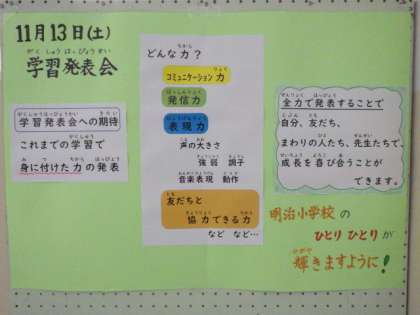 11月13日(土)
がくしゅうはっぴょうかい
学習発表会
がくしゅうはっぴょうかい きたい
学習発表会への期待
がくしゅう
これまでの学習で
み つ ちから はっぴょう
身に付けた力の発表
ちから
どんな力?
りょく
コミュニケーション力
はっしんりょく
発信力
ひょうげんりょく
表現力
こえ おお
声の大きさ
きょうじゃく ちょうし
強弱 調子
おんがくひょうげん どうさ
音楽表現 動作
とも
友だちと
きょうりょく ちから
協力できる力
など など…
ぜんりょく はっぴょう
全力で発表することで
じぶん とも
自分、友だち、
ひと せんせい
まわりの人たち、先生たちで、
せいちょう よろこ あ
成長を喜び合うことが
できます。
明治小学校の
ひとりひとりが
かがや
輝きますように!